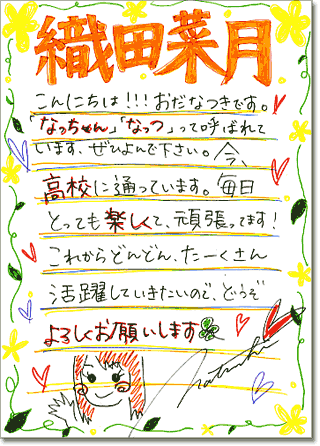 織田菜月
こんにちは!!!おだなつきです。
「なっちゃん」「なっつ」って呼ばれて
います。ぜひよんで下さい。今、
高校に通っています。毎日
とっても楽しくて、頑張ってます!
これからどんどん、たーくさん
活躍していきたいので、どうぞ
よろしくお願いします
Natsuki